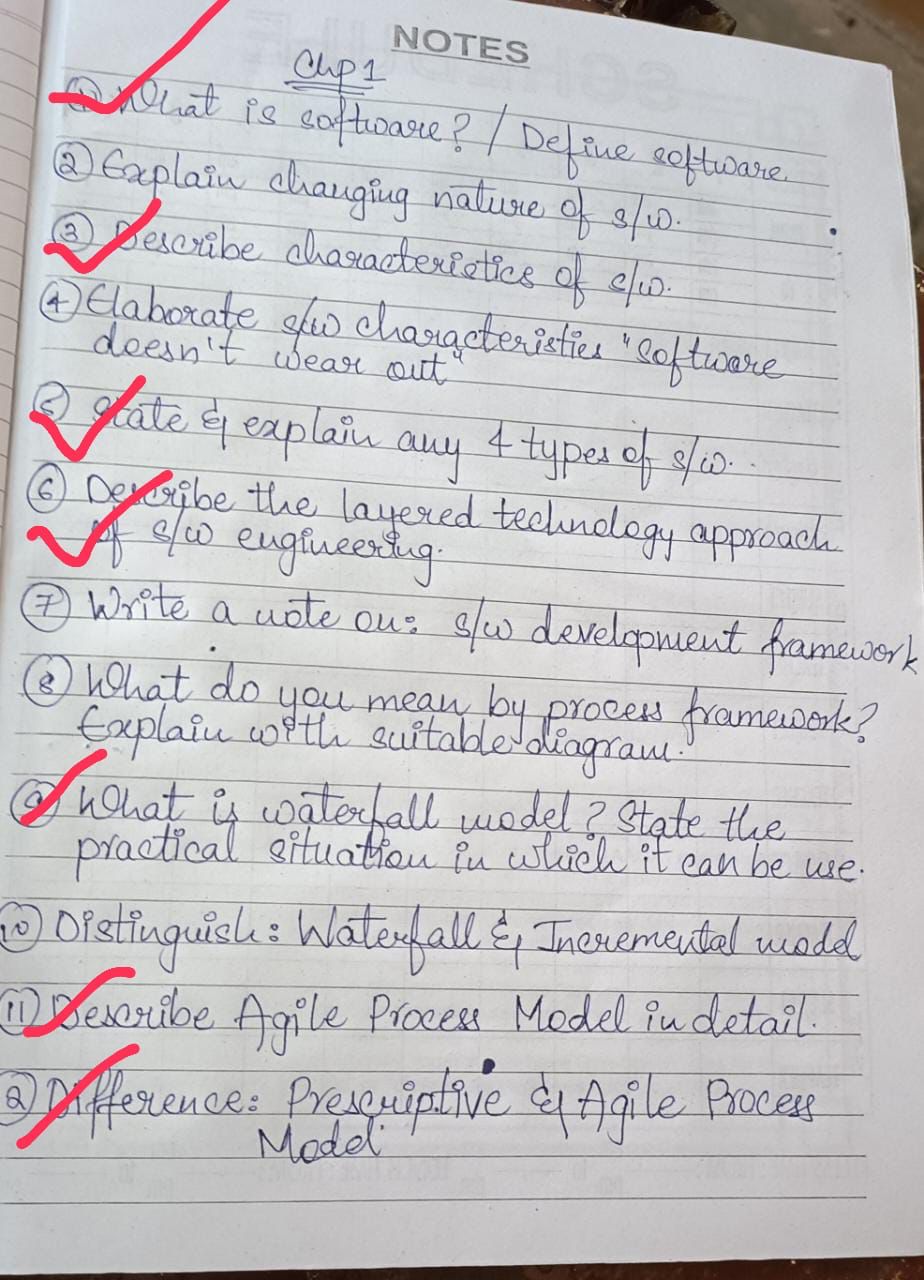 NOTES
Chp 1
① What is software? / Define software.
② Explain changing nature of s/w.
③ Describe characteristics of s/w.
④ Elaborate s/w characteristics "Software
doesn't wear out"
⑤ State & explain any 4 types of s/w.
⑥ Describe the layered technology approach
of s/w engineering.
⑦ Write a note on: s/w development framework
⑧ What do you mean by process framework?
Explain with suitable diagram.
⑨ What is waterfall model? State the
practical situation in which it can be use.
⑩ Distinguish: Waterfall & Incremental model
⑪ Describe Agile Process Model in detail.
⑫ Difference: Prescriptive & Agile Process
Model